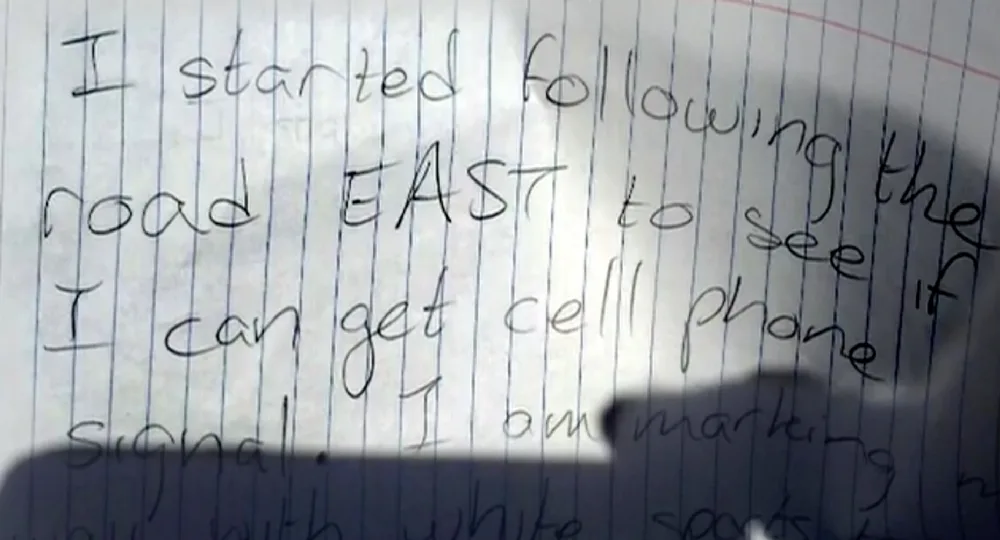 I started following the
road EAST to see if
I can get cell phone
signal. I am marking
with white